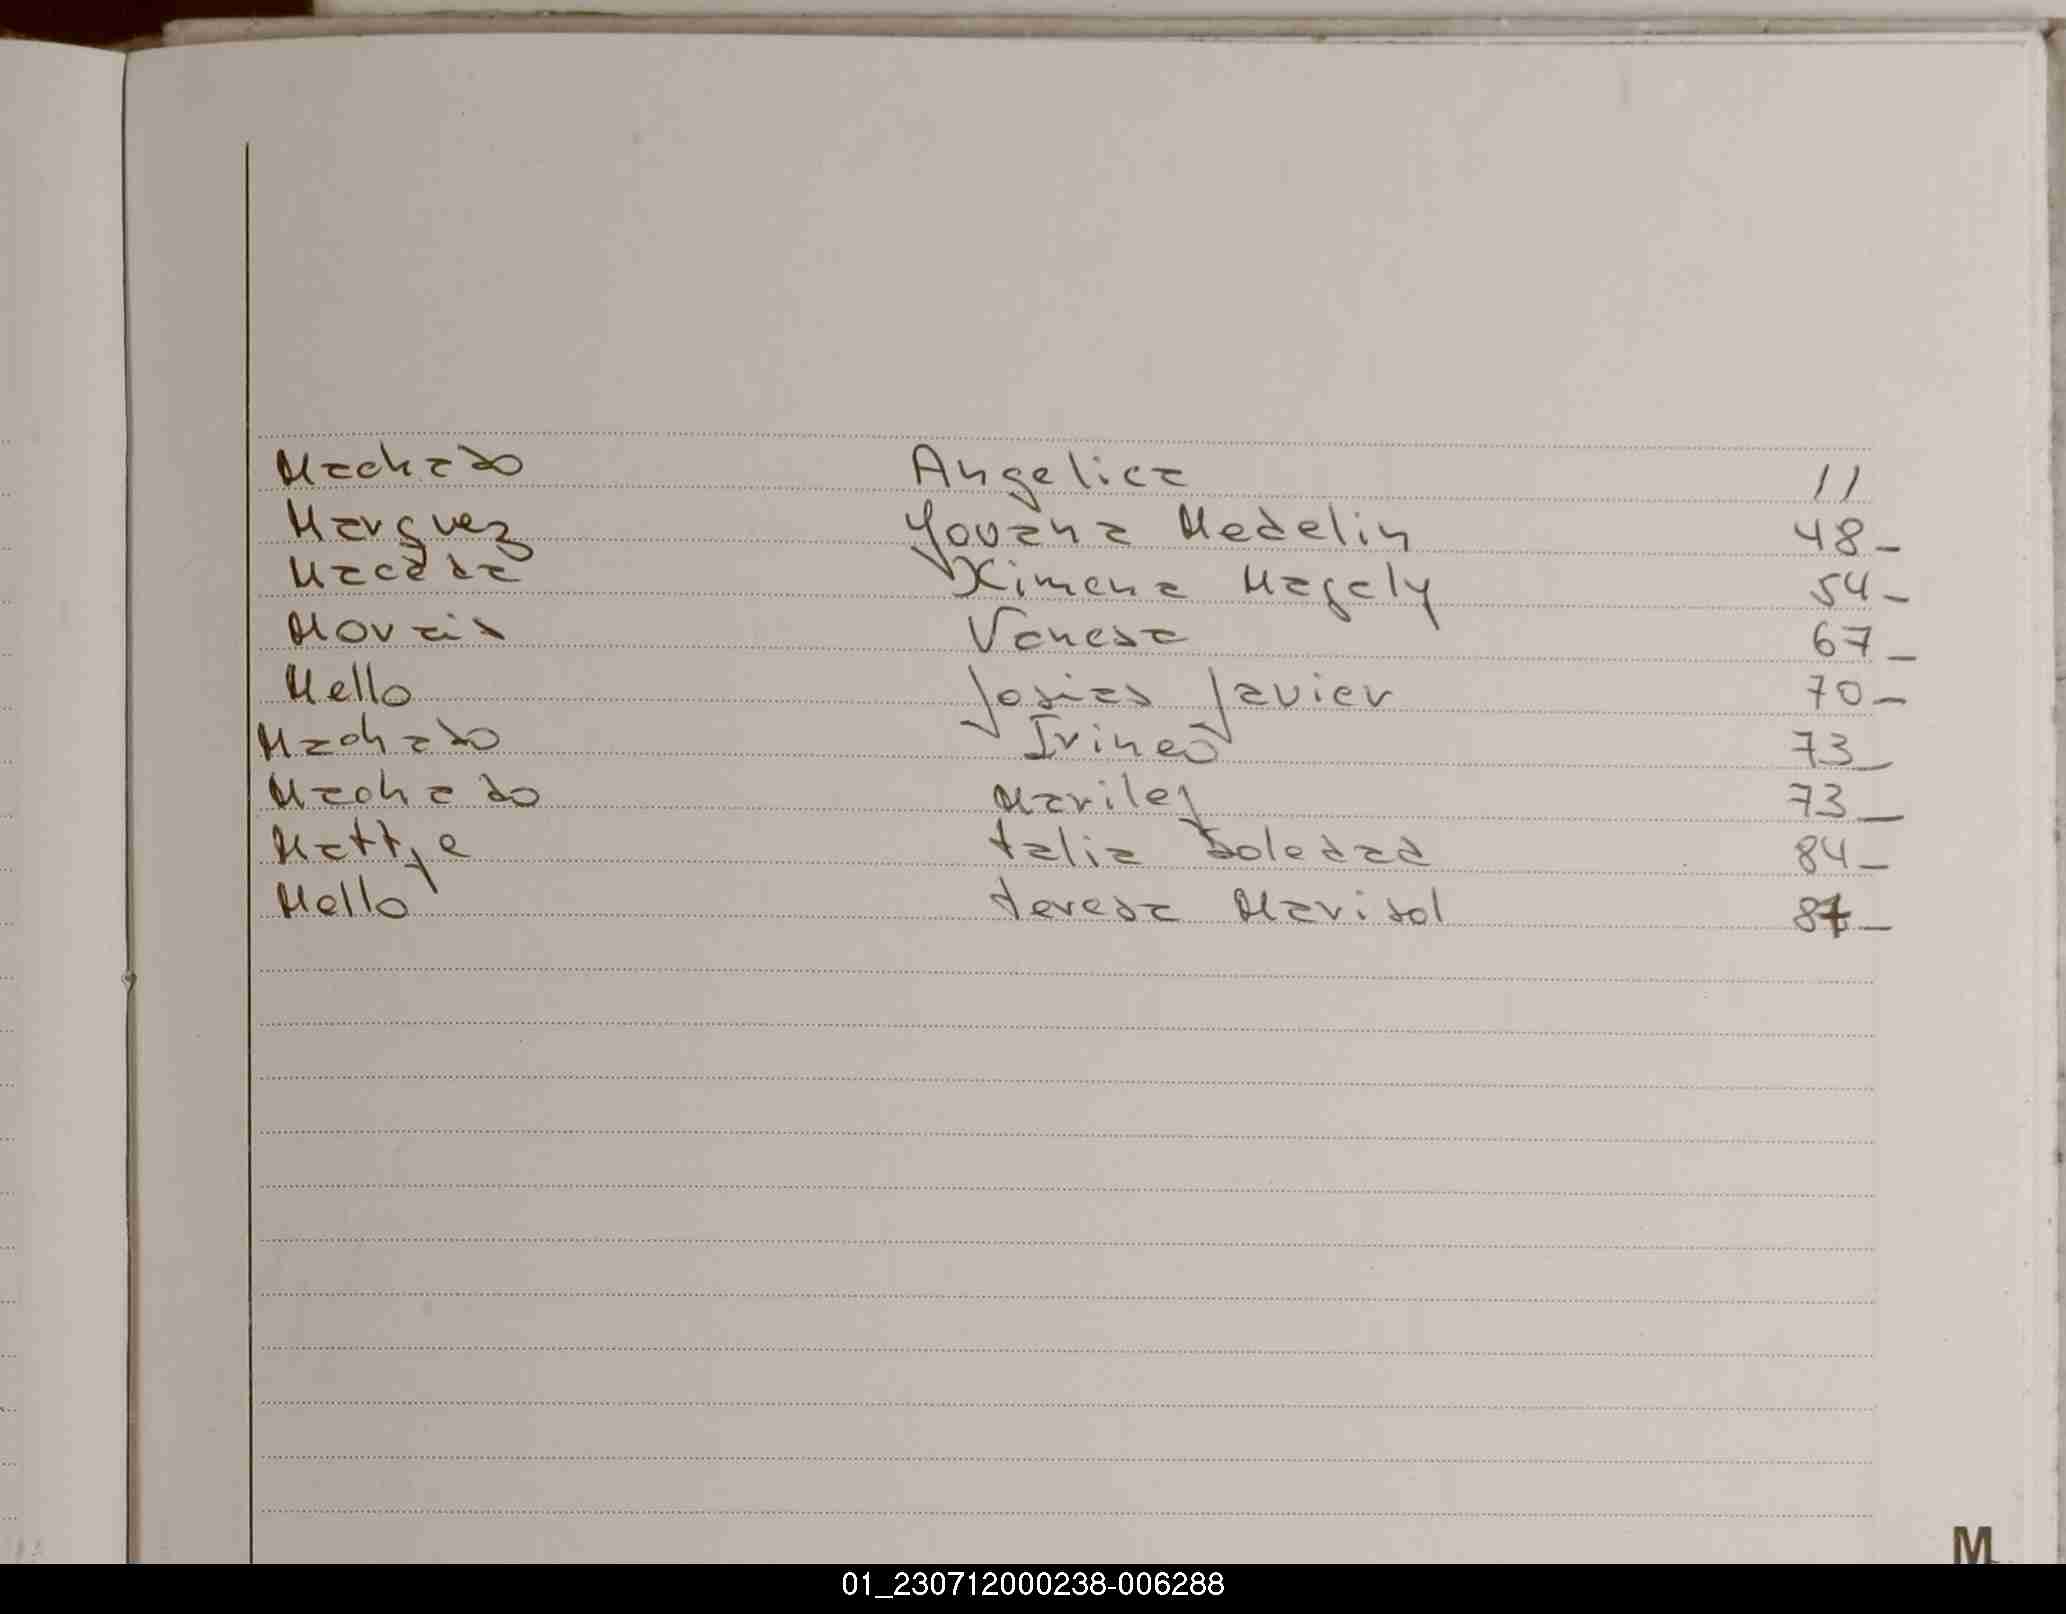 Machado Angelica 11
Marquez Yovana Medelin 48-
Maceda Ximena Magaly 54-
Morais Vanesa 67-
Mello Josias Javier 70-
Machado Irineo 73-
Machado Mariley 73-
Mattje talia Soledad 84-
Mello teresa Marisol 87-
M
01_230712000238-006288